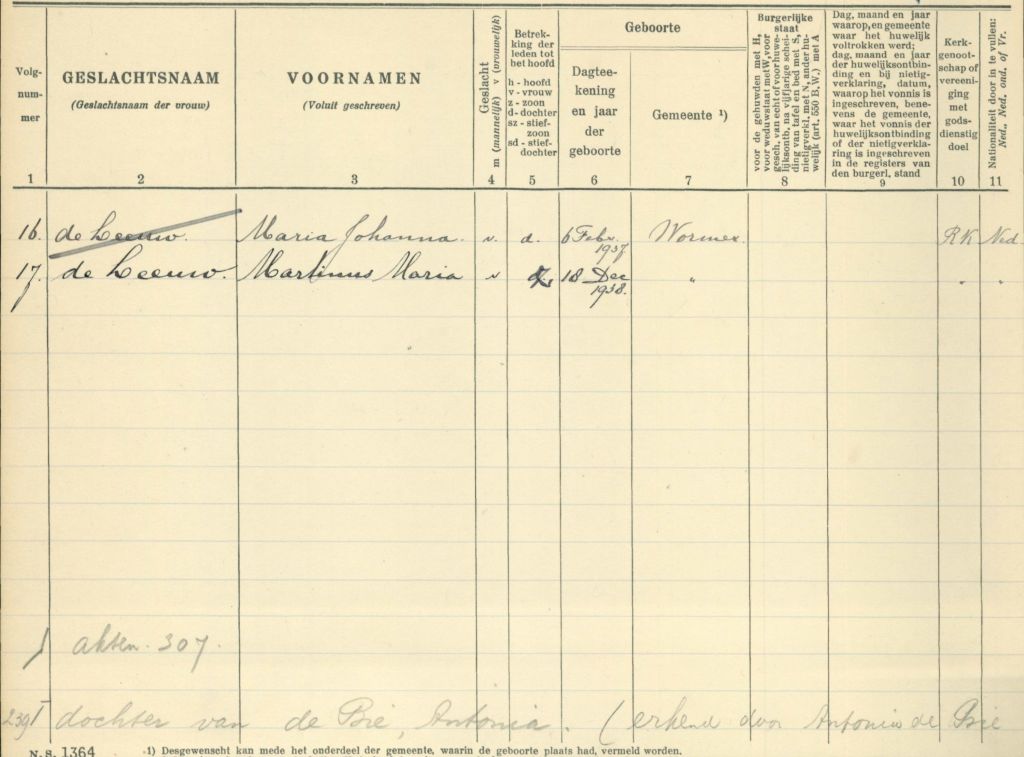 Volg-
num-
mer
1
GESLACHTSNAAM
(Geslachtsnaam der vrouw)
2
VOORNAMEN
(Voluit geschreven)
3
Geslacht
m (mannelijk) v (vrouwelijk)
4
Betrek-
king der
leden tot
het hoofd
h - hoofd
v - vrouw
z - zoon
d - dochter
sz - stief-
zoon
sd - stief-
dochter
5
Geboorte
Dagtee-
kening
en jaar
der
geboorte
6
Gemeente ¹)
7
Burgerlijke
staat
voor de gehuwden met H,
voor weduwstaat met W, voor
gesch. van echt of voorhuwe-
lijksontb. na vijfjarige schei-
ding van tafel en bed met S,
nietigverkl. met N, ander hu-
welijk (art. 550 B.W.) met A
8
Dag, maand en jaar
waarop, en gemeente
waar het huwelijk
voltrokken werd;
dag, maand en jaar
der huwelijksontbin-
ding en bij nietig-
verklaring, datum,
waarop het vonnis is
ingeschreven, bene-
vens de gemeente,
waar het vonnis der
huwelijksontbinding
of der nietigverkla-
ring is ingeschreven
in de registers van
den burgerl. stand
9
Kerk-
genoot-
schap of
vereeni-
ging
met
gods-
dienstig
doel
10
Nationaliteit door in te vullen:
Ned., Ned. ond. of Vr.
11
16. de Leeuw. Maria Johanna. v. d. 6 Febr. 1937. Wormer. RK Ned.
17. de Leeuw. Martinus Maria v 18 Dec 1938. " " "
akten. 307.
239 I dochter van de Bie, Antonia. (erkend door Antonius de Bie
N.S. 1364
1) Desgewenscht kan mede het onderdeel der gemeente, waarin de geboorte plaats had, vermeld worden.